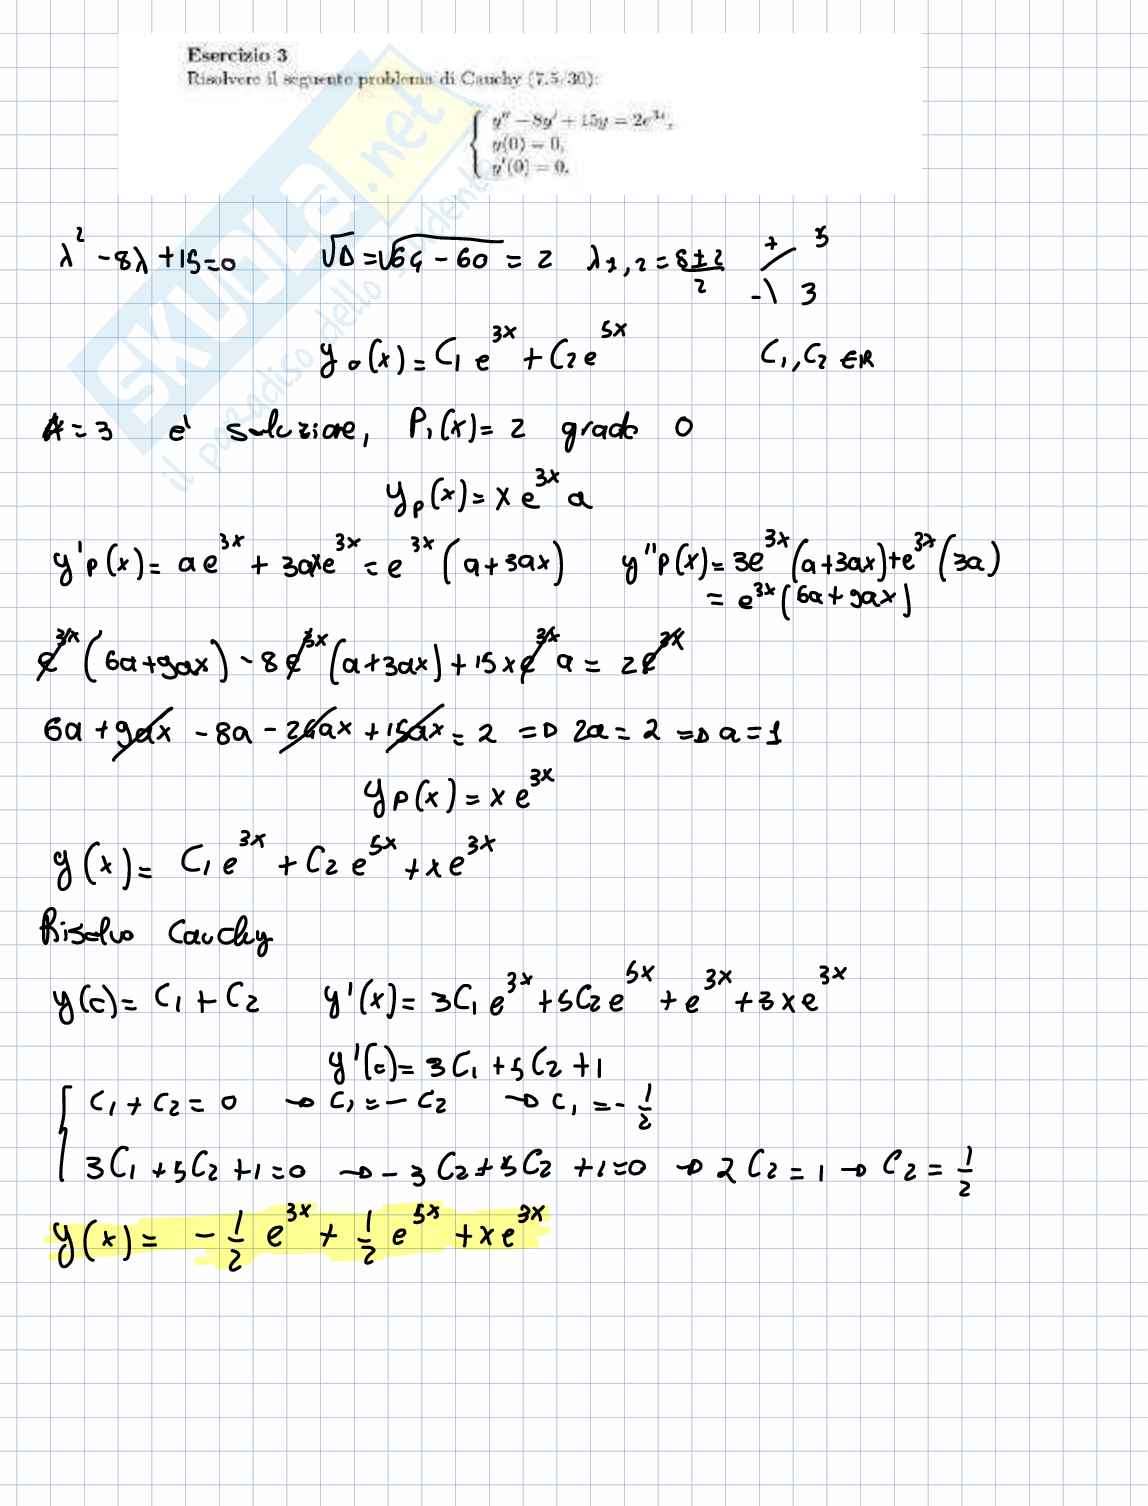 Esercizio 3
Risolvere il seguente problema di Cauchy (7.5/30):
y'' − 8y' + 15y = 2e^{3x},
y(0) = 0,
y'(0) = 0.
SKUOLA.net
il paradiso dello studente
λ² - 8λ + 15 = 0   √Δ = √64 - 60 = 2   λ1,2 = 8 ± 2 / 2   + 5
- 3
y0(x) = C1 e^{3x} + C2 e^{5x}   C1, C2 ∈ R
A = 3 e' soluzione, P1(x) = 2 grado 0
yp(x) = x e^{3x} a
y'p(x) = a e^{3x} + 3axe^{3x} = e^{3x} (a + 3ax)   y''p(x) = 3e^{3x} (a + 3ax) + e^{3x} (3a)
= e^{3x} (6a + 9ax)
e^{3x} (6a + 9ax) - 8 e^{3x} (a + 3ax) + 15 x e^{3x} a = 2 e^{3x}
6a + 9ax - 8a - 24ax + 15ax = 2 => 2a = 2 => a = 1
yp(x) = x e^{3x}
y(x) = C1 e^{3x} + C2 e^{5x} + x e^{3x}
Risolvo Cauchy
y(0) = C1 + C2   y'(x) = 3C1 e^{3x} + 5C2 e^{5x} + e^{3x} + 3 x e^{3x}
y'(0) = 3C1 + 5C2 + 1
C1 + C2 = 0 → C1 = - C2 → C1 = - 1/2
3C1 + 5C2 + 1 = 0 → - 3C2 + 5C2 + 1 = 0 → 2C2 = 1 → C2 = 1/2
y(x) = - 1/2 e^{3x} + 1/2 e^{5x} + x e^{3x}